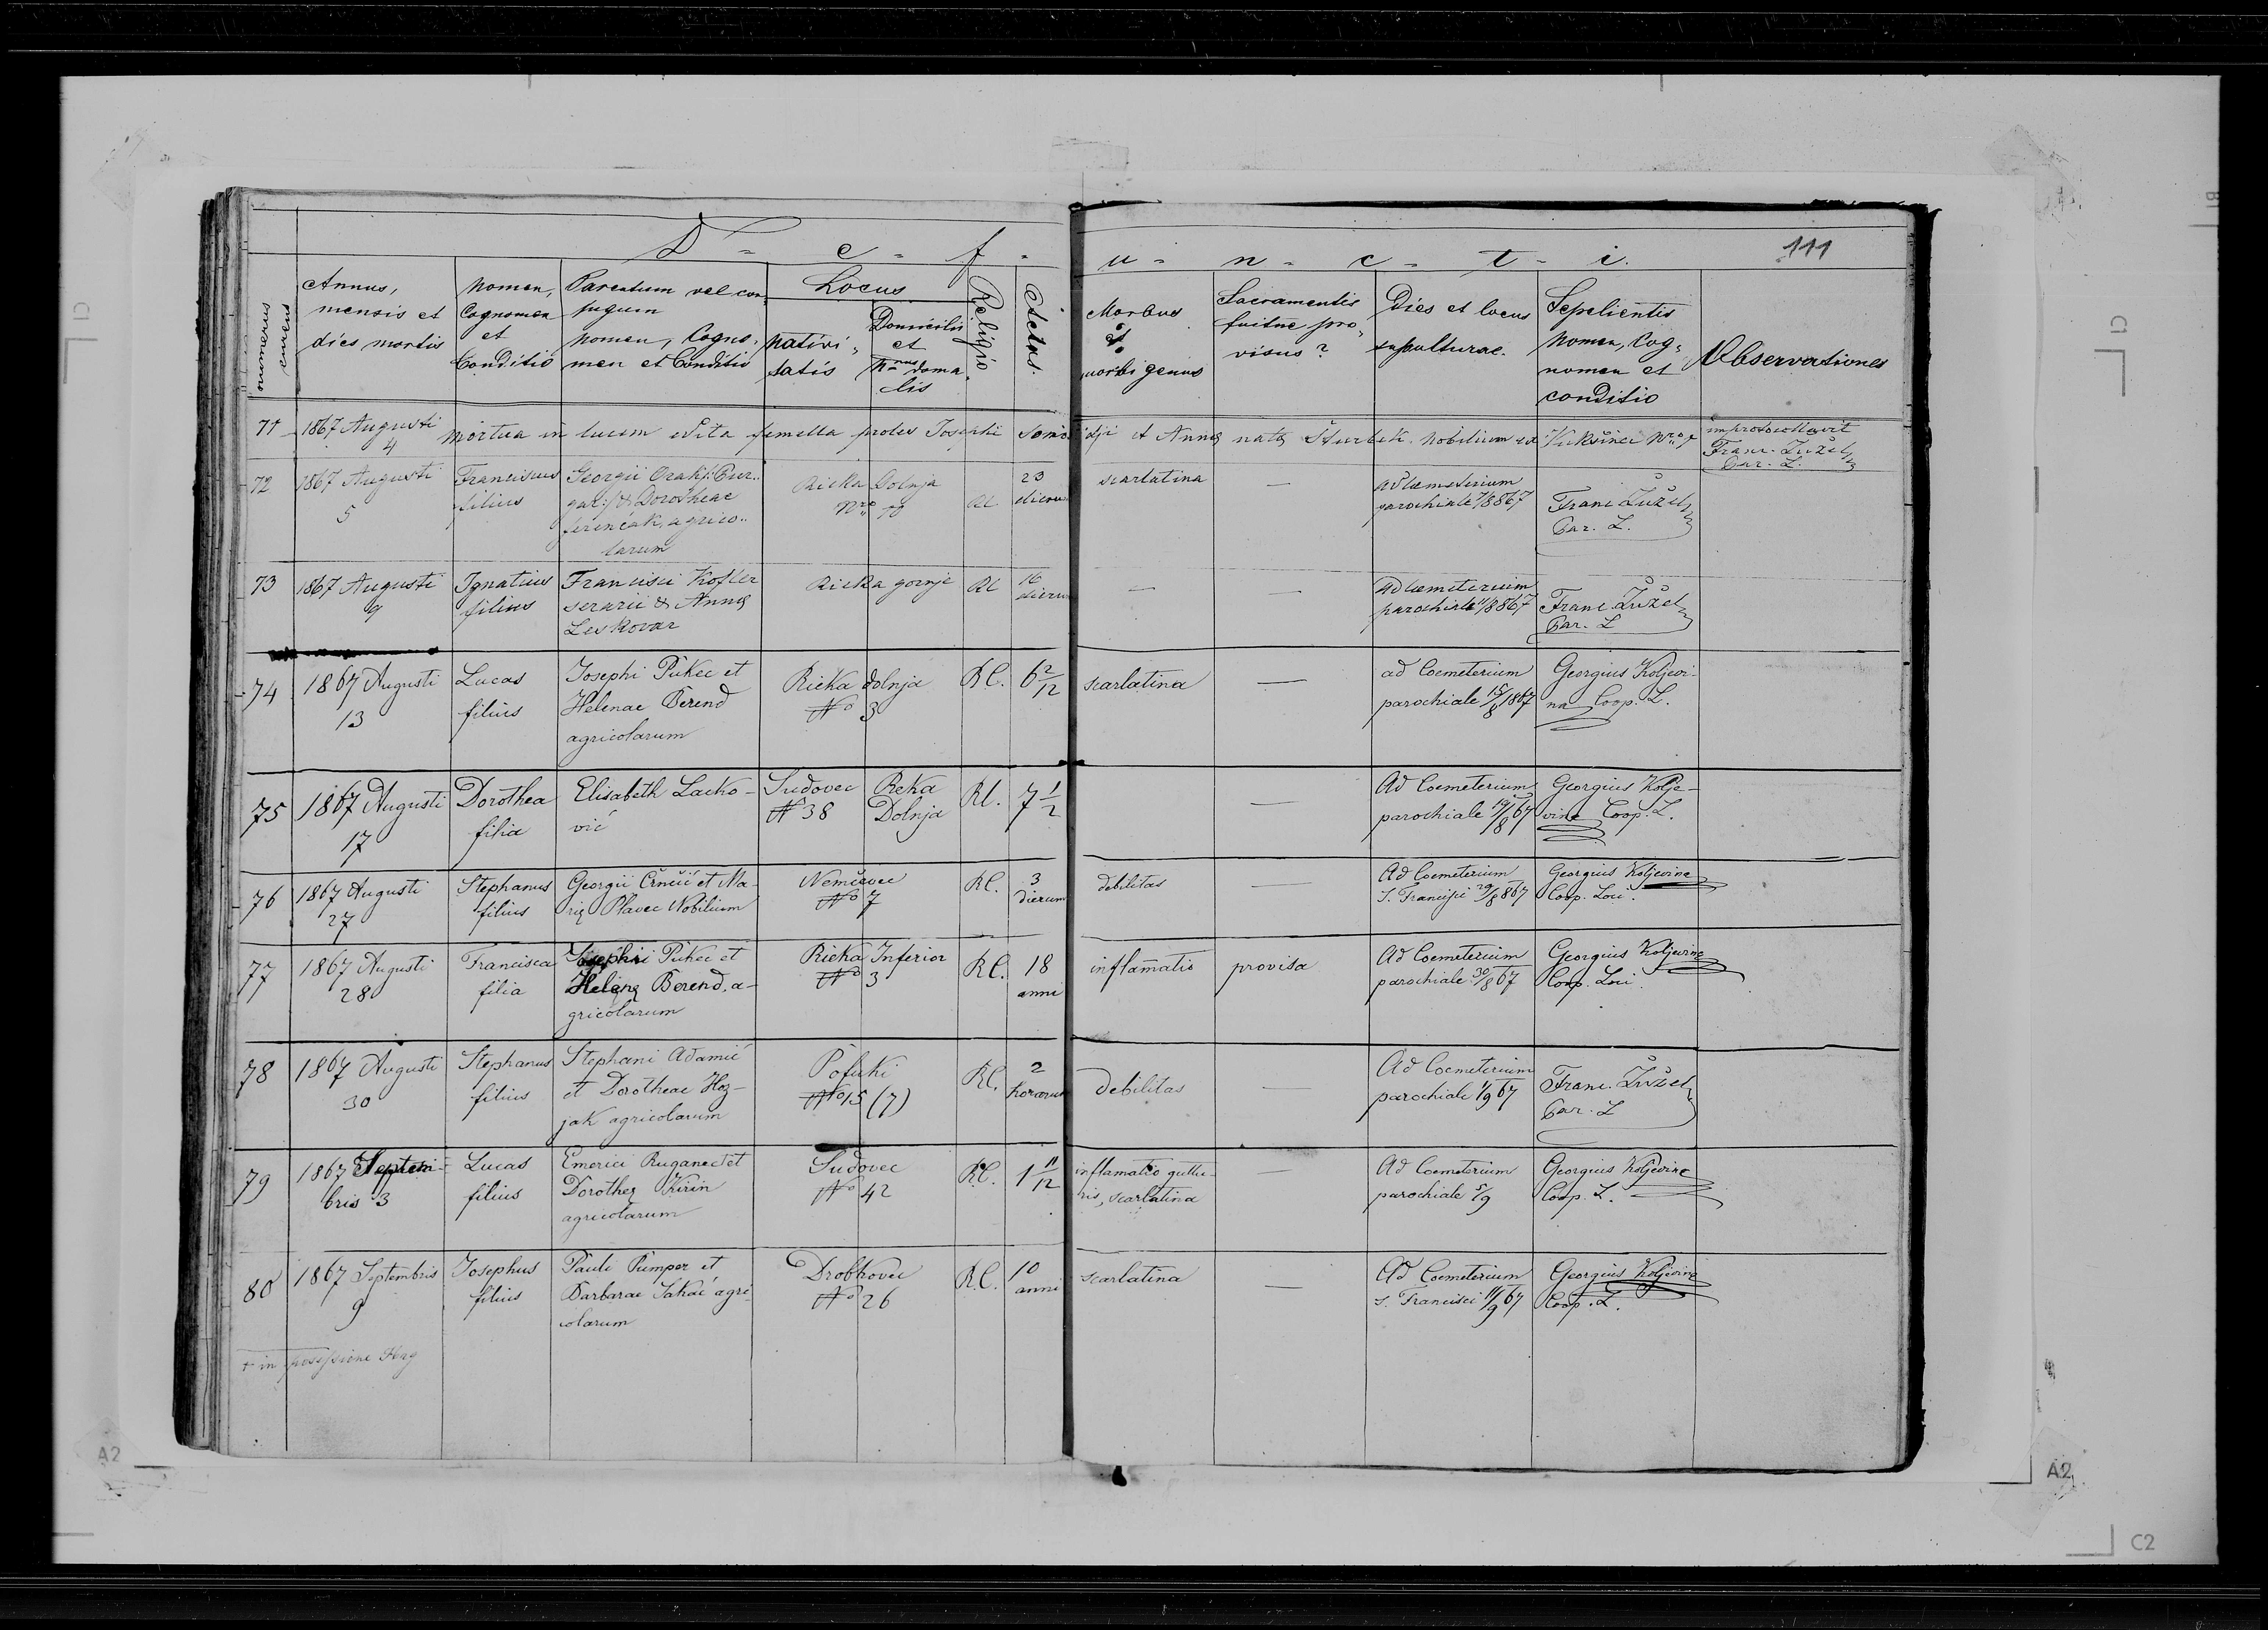 D - e - f -
u - n - c - t - i.
111
numerus currens
Annus,
mensis et
dies mortis
Nomen,
Cognomen
et
Conditio
Parentum vel con-
jugum
nomen, Cogno-
men et Conditio
Locus
nativi-
tatis
Domicilii
et
Nrus doma-
lis
Religio
Aetas.
Morbus
et
morbi genus
Sacramentis
fuitne pro-
visus?
Dies et locus
sepulturae.
Sepelientis
Nomen, Cog-
nomen et
conditio
Observationes
71
1867 Augusti
4
Mortua in lucem edita femella proles Josephi et Annę natę Šturbek Nobilium ex Vukšinec Nro
improtocollavit
Franc. Žužel
Par. L.
72
1867 Augusti
5
Franciscus
filius
Georgii
& Dorotheae
ferinčak, agrico-
larum
Rieka Dolnja
Nro 10
RC
23
dierum
scarlatina
—
ad coemeterium
parochiale 7/8 867
Franc Žužel
Par. L.
73
1867 Augusti
9
Ignatius
filius
Francisci Kofler
serarii & Annę
Leskovar
Rieka gornje
RC
16
dierum
—
—
Ad coemeterium
parochiale 11/8 867
Franc. Žužel
Par. L
74
1867 Augusti
13
Lucas
filius
Josephi Pukec et
Helenae Berend
agricolarum
Rieka dolnja
No 3
RC.
6 2/12
scarlatina
—
ad Coemeterium
parochiale 15/8 1867
Georgius Koljevi-
na Coop. L.
75
1867 Augusti
17
Dorothea
filia
Elisabeth Lacko-
vić
Sudovec
No 38
Reka
Dolnja
RC.
7 1/2
—
Ad Coemeterium
parochiale 19/8 67
Georgius Kolje-
vina Coop. L.
76
1867 Augusti
27
Stephanus
filius
Georgii Črnčić et Ma-
rię Plavec Nobilium
Nemčevec
No 7
RC.
3
dierum
debilitas
—
Ad Coemeterium
S. Francisci 29/8 867
Georgius Koljevina
Coop. Loci.
77
1867 Augusti
28
Francisca
filia
Josephi Pukec et
Helenę Berend, a-
gricolarum
Rieka Inferior
No 3
RC.
18
anni
inflamatio
provisa
Ad Coemeterium
parochiale 30/8 67
Georgius Koljevina
Coop. Loci.
78
1867 Augusti
30
Stephanus
filius
Stephani Adamić
et Dorotheae Hoz-
jak agricolarum
Pofuki
No 15 (7)
RC.
2
horarum
debilitas
—
Ad Coemeterium
parochiale 1/9 67
Franc. Žužel
Par. L
79
1867 Septem-
bris 3
Lucas
filius
Emerici Ruganec et
Dorotheę Kirin
agricolarum
Sudovec
No 42
RC.
1 11/12
inflamatio guttu-
ris, scarlatina
—
Ad Coemeterium
parochiale 5/9
Georgius Koljevina
Coop. L.
80
1867 Septembris
9
Josephus
filius
Pauli Pumper et
Barbarae Sakač agri-
colarum
Drobkovec
No 26
RC.
10
anni
scarlatina
—
Ad Coemeterium
S. Francisci 11/9 67
Georgius Koljevina
Coop. L.
+ in possessione
C1
A2
B1
C1
A2
C2